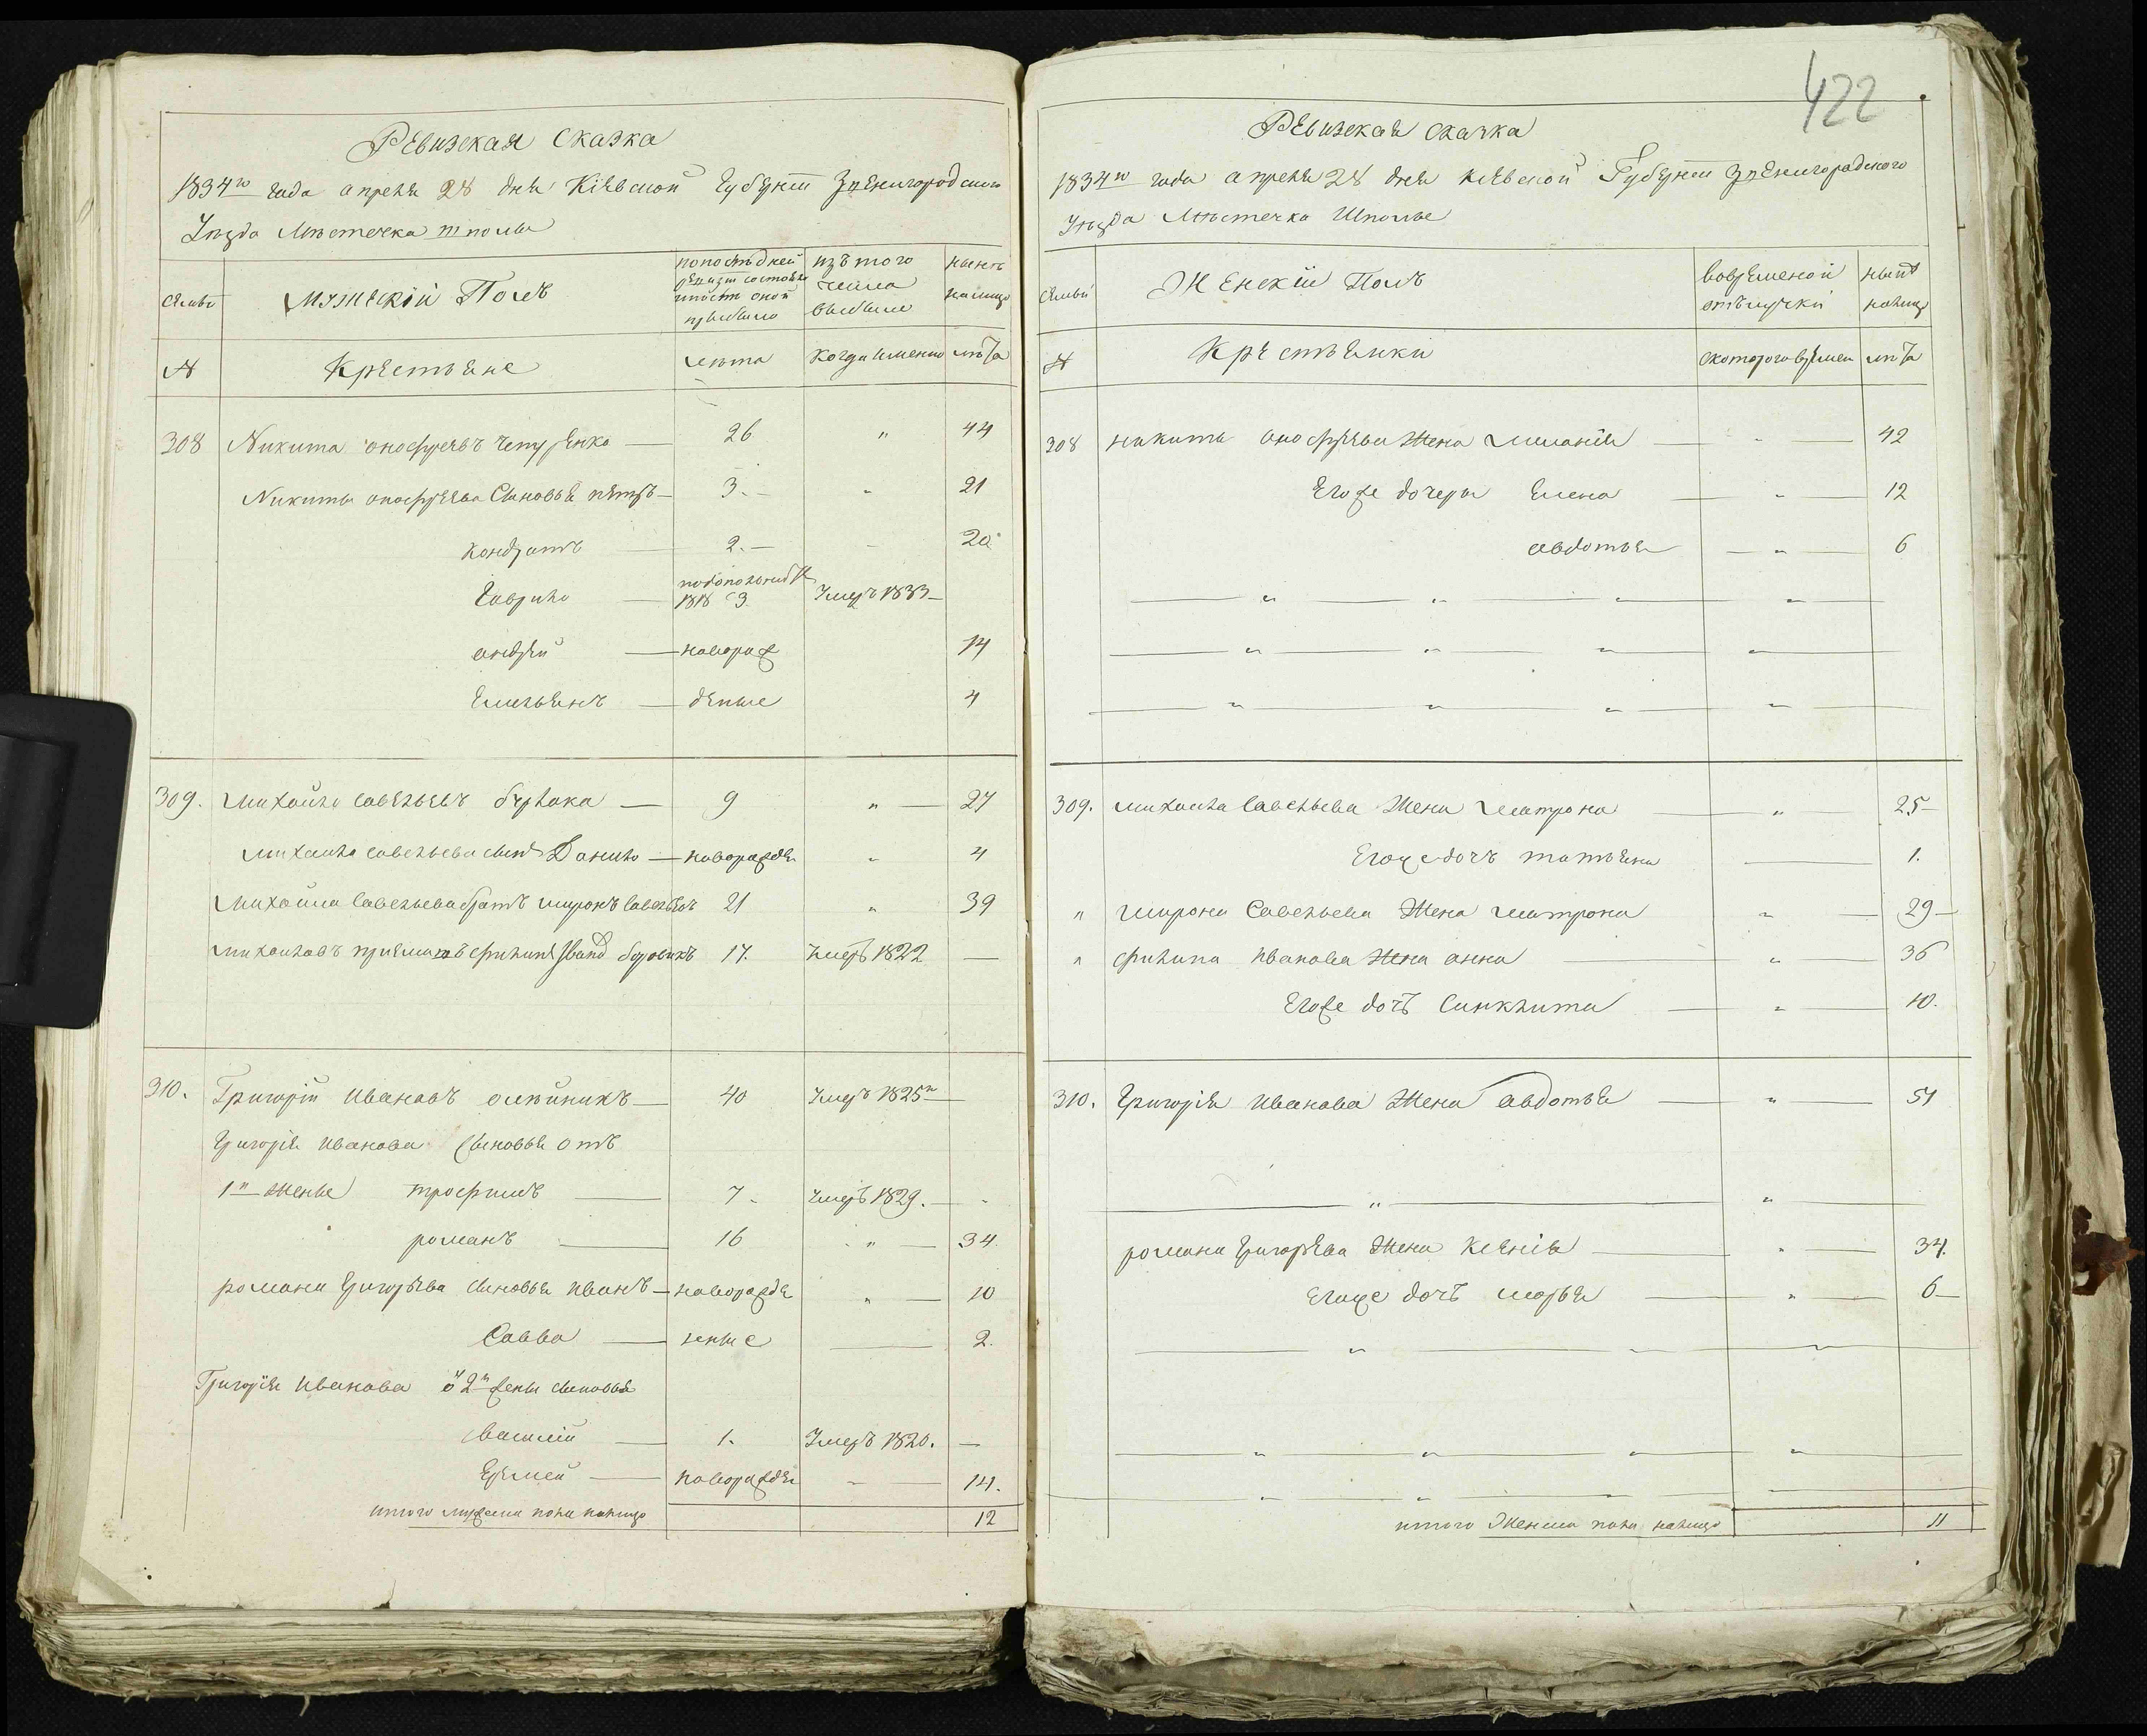 Ревизская Сказка
1834го года апреля 28 дня Кіевской Губерніи Звенигородского
Уезда Мѣстечка Шполы
семьи
Мужескій Полъ
по последней ревизіи состояло и после оной прибыло
изъ того числа выбыло
нынѣ налицо
№
Крестьяне
лета
Когда именно
лѣта
308 Никита Онофреевъ Чепуренко — 26 " 44
Никиты Онофреева Сыновья Петръ — 3. — " 21
Кондратъ — 2. — 20
Гаврило — 1818 3. Умеръ 1833 —
андрей — новорож 14
Емельянъ — деные 4
309. Михайло Савельевъ бурлака — 9 " — 27
Михаила Савельева сынъ Данило — новорожде " 4
Михаила Савельева братъ Миронъ Савельевъ 21 " 39
Михаиловъ приемышъ Филипъ 17. Умеръ 1822 —
310. Григорій Ивановъ олейникъ — 40 Умеръ 1825го —
Григорія Иванова Сыновья отъ
1й жены Трофимъ — 7 - умеръ 1829. — -
романъ — 16 " — 34.
романа Григорьева сыновья иванъ — новорожде " — 10
Савва — нные — 2.
Григорія Иванова о 2й жены сыновья
Василій — 1. Умеръ 1820. —
Еремей — новорожде — 14.
итого мужеска пола налицо 12
422
Ревизская сказка
1834го года апреля 28 дня Кіевской Губерніи Звенигородского
Уезда Мѣстечка Шполы
семьи
Женскій Полъ
во временной отълучки
нынѣ налицо
№
Крестьянки
с которого времен
лѣта
308 никиты Онофреева Жена Меланія — " — 42
Егоже дочери Елена — " — 12
авдотья — " — 6
— " — " — " — " —
— " — " — " — " —
— " — " — " — " —
309. Михаила Савельева Жена Матрона — " — 25 —
Егоже дочъ татьяна — 1.
" Мирона Савельева Жена Матрона " — 29 —
" Филипа Иванова Жена анна — " — 36
Егоже дочъ Синклита — " — 10.
310. Григорія Иванова Жена авдотья — " — 51
— " — " —
романа Григорьева Жена Ксенія — " — 34.
Егоже дочъ марья — " — 6 —
— " — " — " —
— " — " — " — " —
— " — " — " — " —
итого Женска пола налицо 11